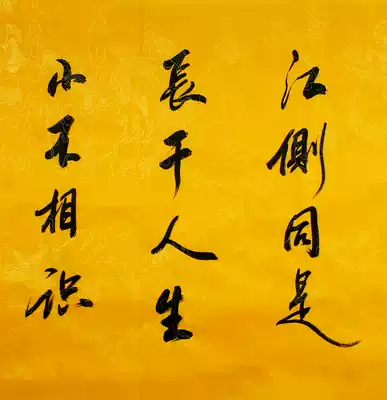 江側同是
長干人生
小不相识